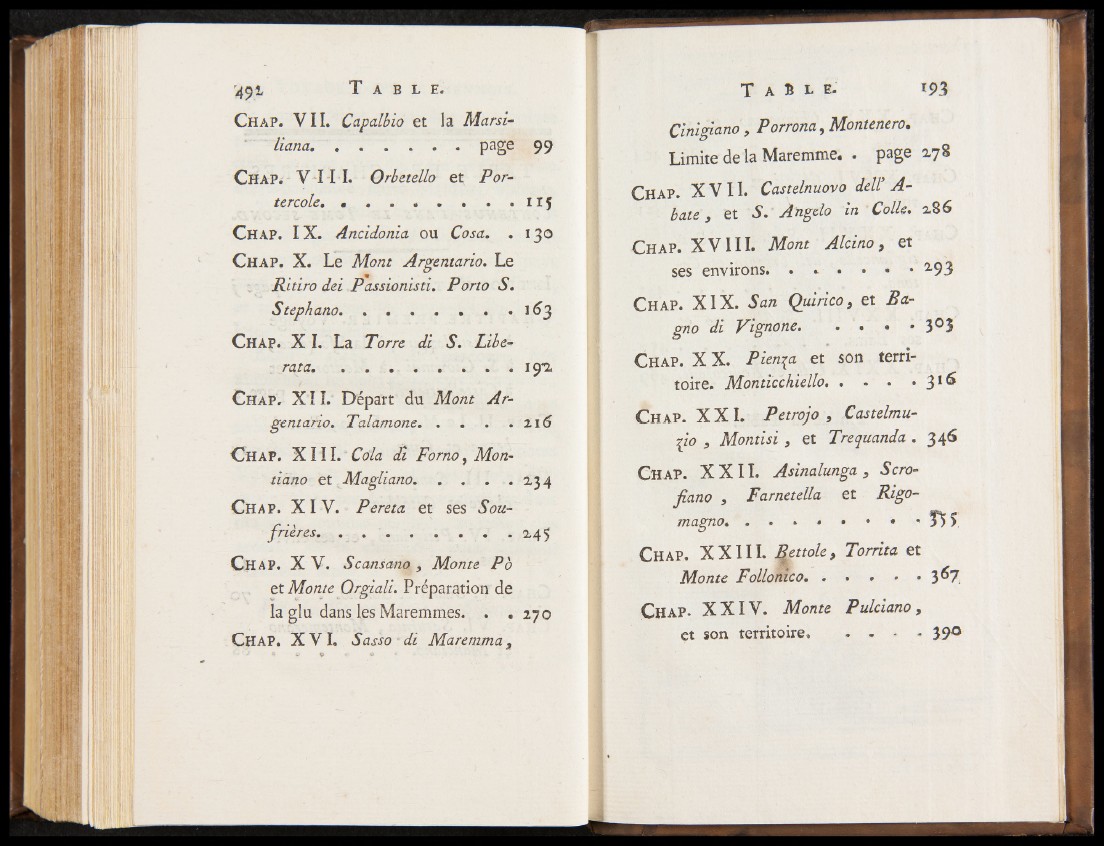 492 TABLE.
CHAP. VII. Capalbio et la Marsi-
liana. . . . . . . page 99
CHAP. VIII. Orbetello et Por-
tercole. . . . . . . . . 115
CHAP. IX. Ancidonia ou Cosa. . 130
CHAP. X. Le Mont Argentario. Le
Ritiro dei Passionisti. Porto S.
Stephano. . . . . . . . 163
CHAP. XI. La Torre di S. Libe-
rata. . . . . . . . . 192
CHAP. XII. Départ du Mont Ar-
gentario. Talamone. . . . . . 216
CHAP. XIII. Cola di Forno, Mon-
tiano et Magliano. . . . . . 234
CHAP. XIV. Pereta et ses Sou-
frières. . . . . . . . . 245
CHAP. XV. Scansano, Monte Pò
et Monte Orgiali. Préparation de
la glu dans les Maremmes. . . 270
CHAP. XVI. Sasso di Maremma,
TABLE. 193
Cinigiano, Porrona, Montenero.
Limite de la Maremme. . page 278
CHAP. XVII. Castelnuovo dell' A-
bate, et S. Angelo in Colle. 286
CHAP. XVIII. Mont Alcino, et
ses environs. . . . . . . 293
CHAP. XIX. San Quirico, et Ba-
gno di Vignone. . . . . 303
CHAP. XX. Pienza et son terri-
toire. Monticchiello. . . . . 316
CHAP. XXI. Petrojo, Castelmu-
zio, Montisi, et Trequanda. 346
CHAP. XXII. Asinalunga, Scro-
fiano, Farnetella et Rigo-
magno. . . . . . . . . 355
CHAP. XXIII. Bettole, Torrita et
Monte Follonico. . . . . . 367
CHAP. XXIV. Monte Pulciano,
et son territoire. . . . . 390